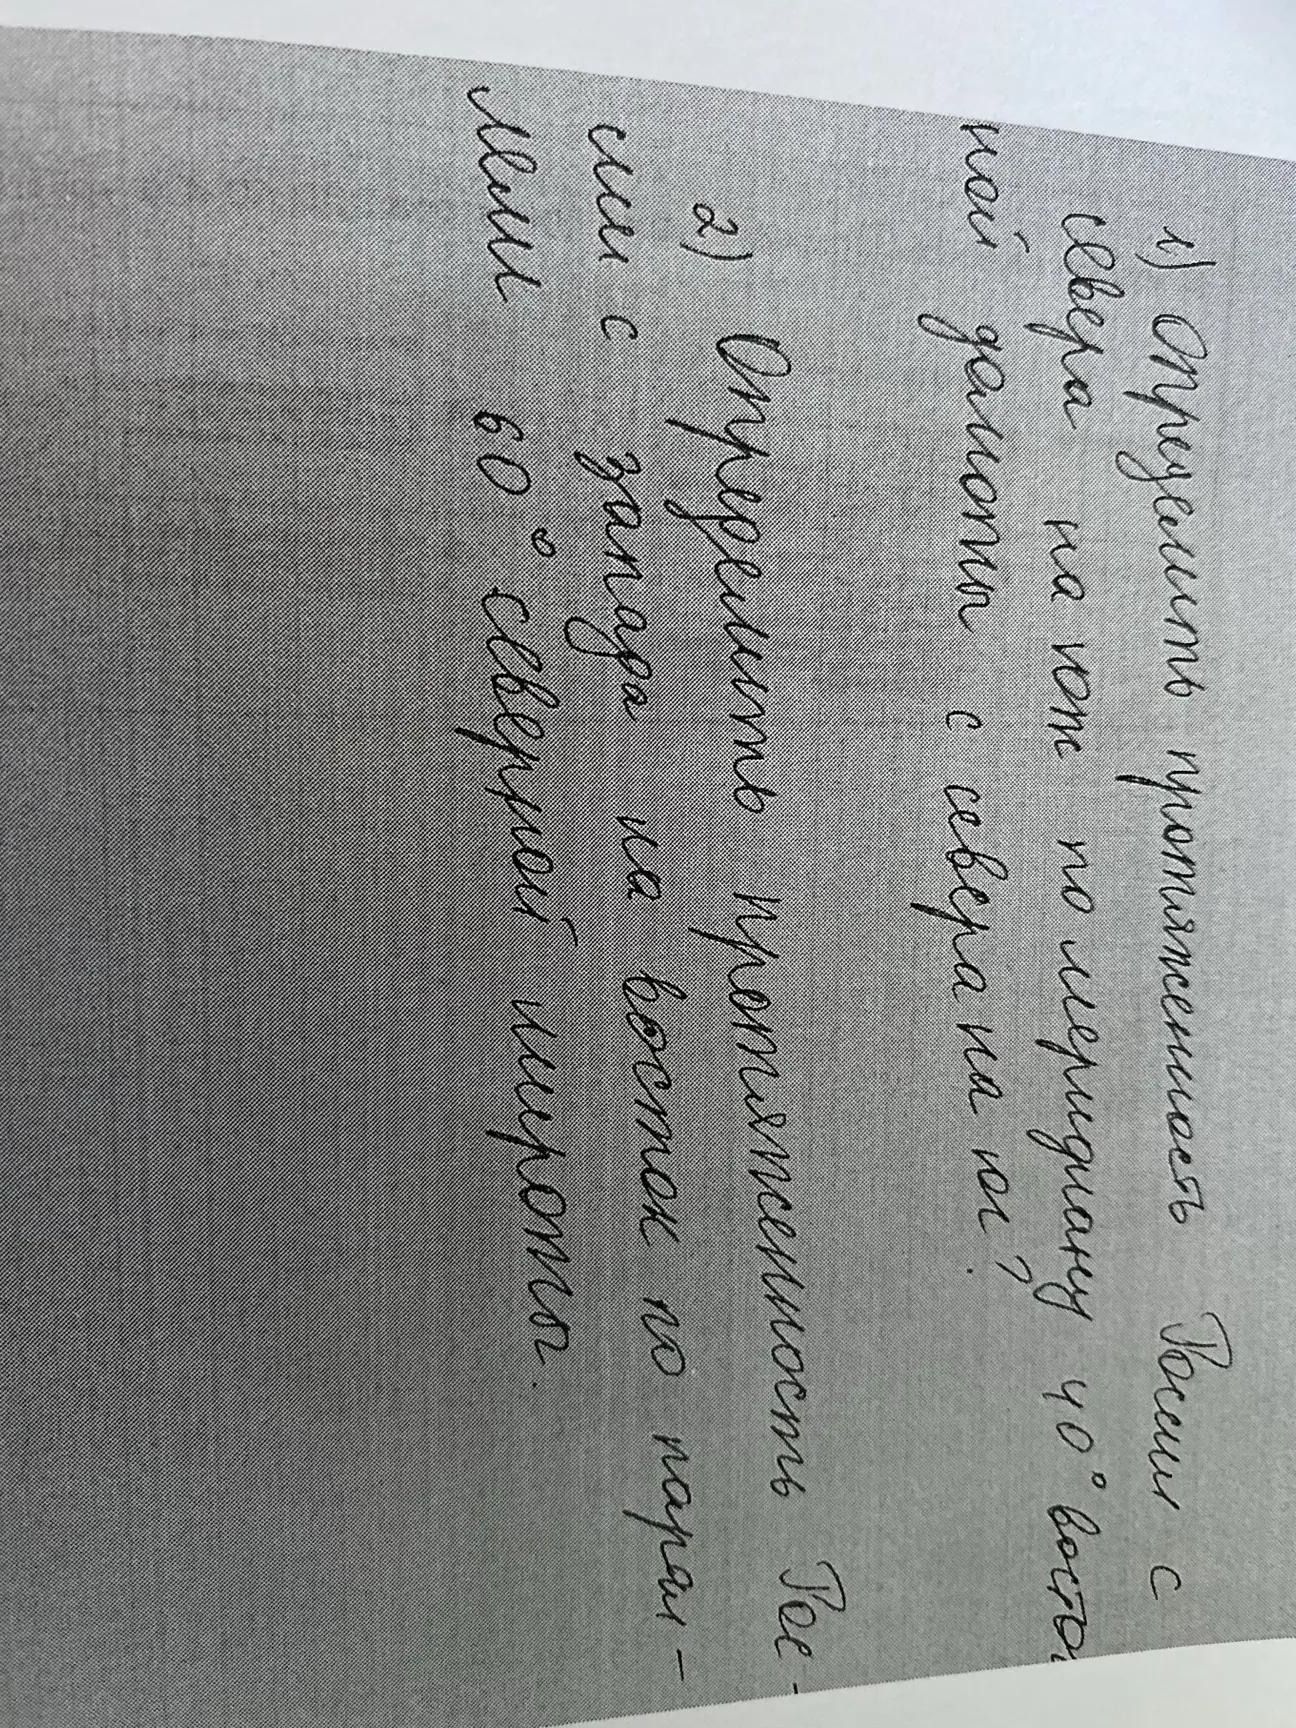 1) Определить протяженность Россиии с
севера на юж по меридиану 40° восто
ной долготы с севера на юг?
2) Определить протяженность Рос-
сии с запада на восток по парал-
лели 60° северной широты.